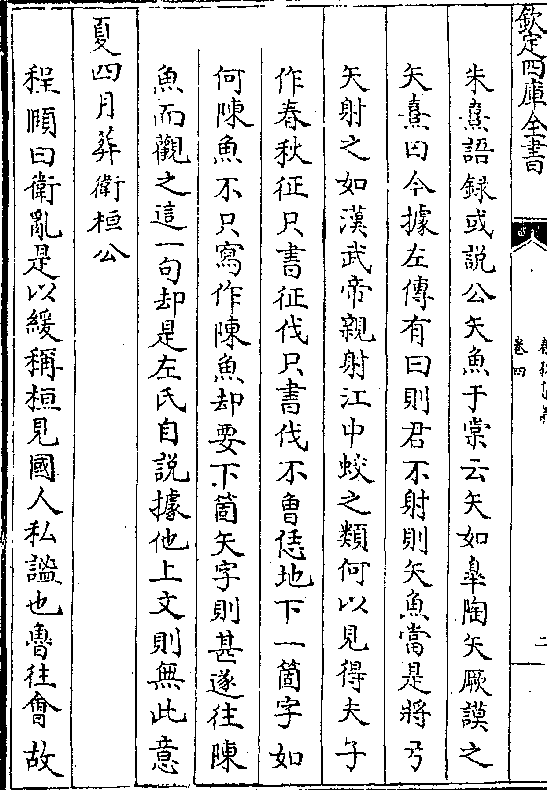 欽定四庫全書
卷四
二
朱熹語録或説公矢魚于棠云矢如臯陶矢厥謨之
矢熹曰今據左傳有曰則君不射則矢魚當是將弓
矢射之如漢武帝親射江中蛟之類何以見得夫子
作春秋征只書征伐只書伐不曾恁地下一箇字如
何陳魚不只寫作陳魚却要下箇矢字則甚遂往陳
魚而觀之這一句却是左氏自説據他上文則無此意
夏四月葬衛桓公
程頤曰衛亂是以緩稱桓見國人私諡也魯往會故